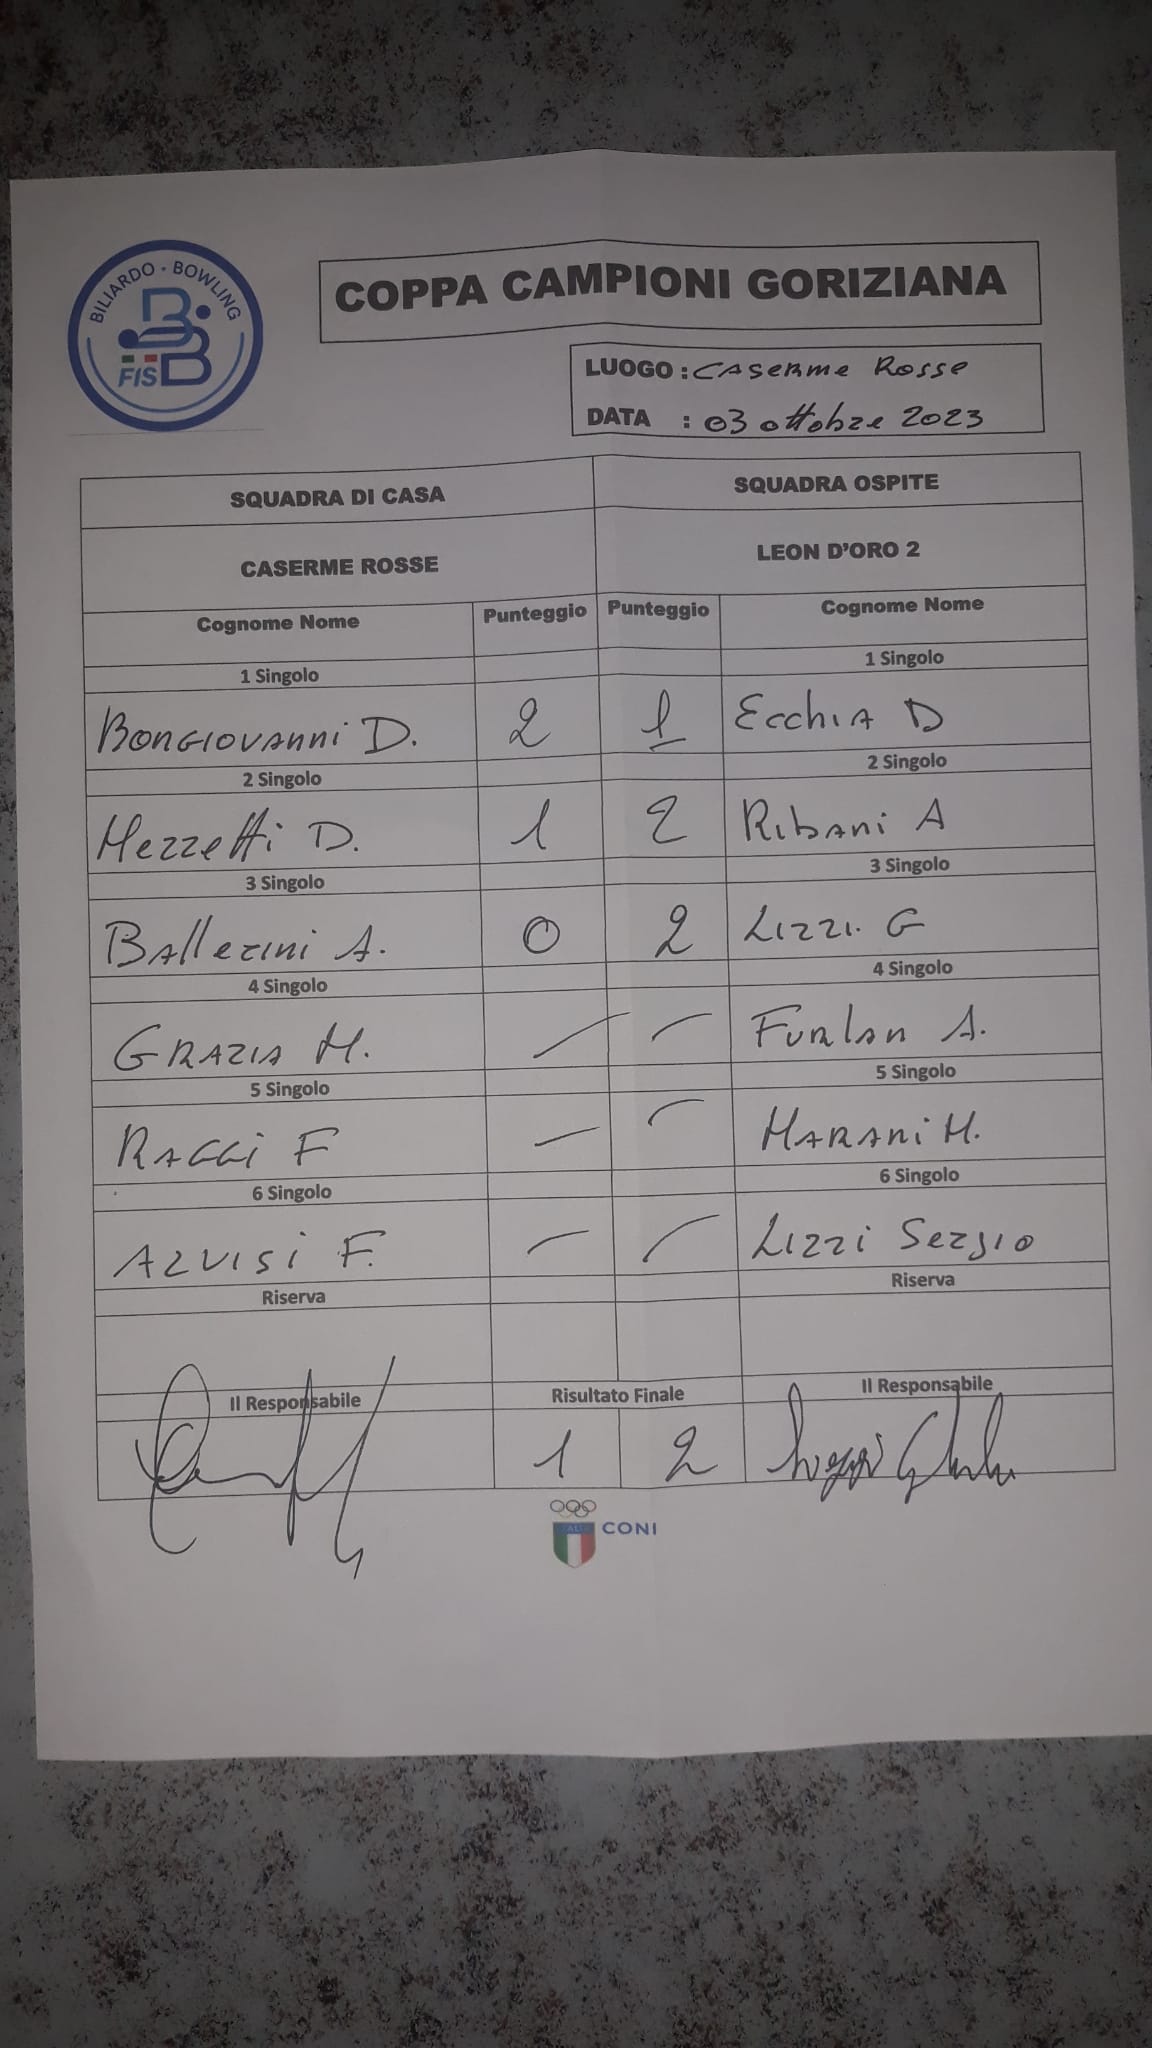 BILIARDO - BOWLING
FISBB
COPPA CAMPIONI GORIZIANA
LUOGO : CASERME ROSSE
DATA : 03 ottobre 2023
SQUADRA DI CASA SQUADRA OSPITE
CASERME ROSSE LEON D'ORO 2
Cognome Nome Punteggio Punteggio Cognome Nome
1 Singolo 1 Singolo
BONGIOVANNI D. 2 1 ECCHIA D
2 Singolo 2 Singolo
Mezzetti D. 1 2 Ribani A
3 Singolo 3 Singolo
BAllerini A. 0 2 LIZZI. G
4 Singolo 4 Singolo
GRAZIA M. — — Furlan A.
5 Singolo 5 Singolo
RAGGI F — — MARANI M.
6 Singolo 6 Singolo
ALVISI F. — — LIZZI Sergio
Riserva Riserva
Il Responsabile Risultato Finale Il Responsabile
1 2
ITALIA CONI